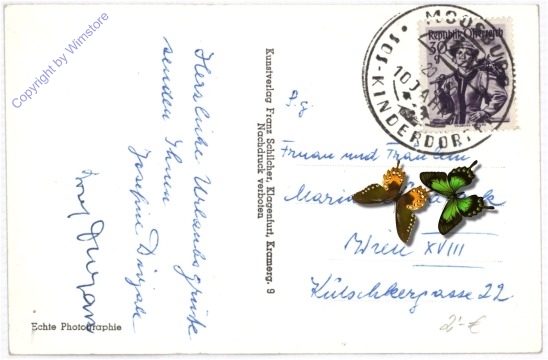 Copyright by Wimstore
Herzliche Urlaubsgrüße
senden Ihnen
Josefine
Echte Photographie
Kunstverlag Franz Schilcher, Klagenfurt, Kramerg. 9
Nachdruck verboten
MOOSBURG
SOS-KINDERDORF
10 JAHRE
Republik Österreich
30
g
P. g.
Frau und Fräulein
Maria
Wien XVIII
Kutschkergasse 22.
2'- €